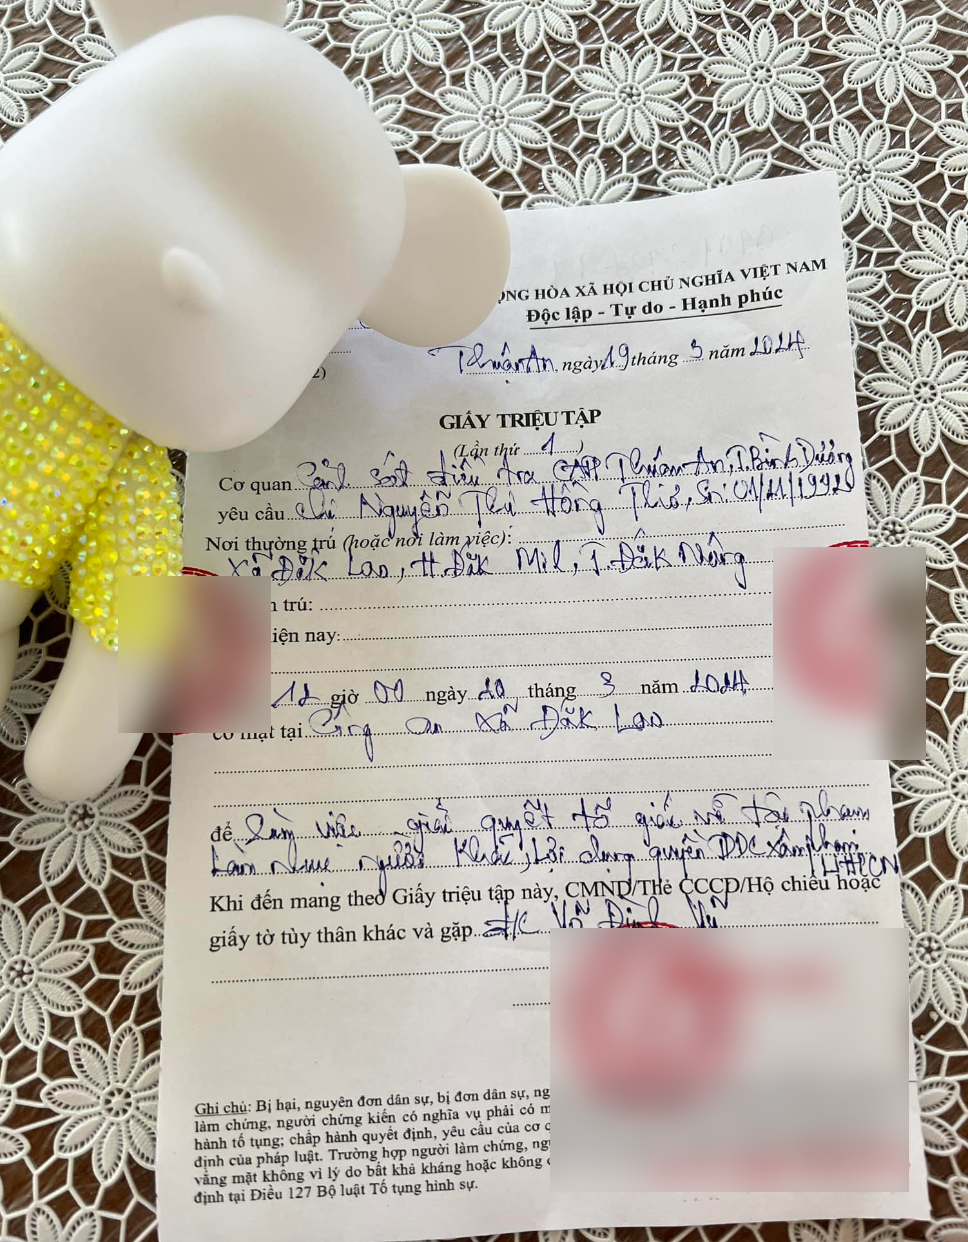 ỘNG HÒA XÃ HỘI CHỦ NGHĨA VIỆT NAM
Độc lập - Tự do - Hạnh phúc
2)
Thuận An, ngày 19 tháng 3 năm 2024
GIẤY TRIỆU TẬP
(Lần thứ 1)
Cơ quan Cảnh sát điều tra CATP Thuận An, T. Bình Dương
yêu cầu chị Nguyễn Thị Hồng
Nơi thường trú (hoặc nơi làm việc):
Xã Đăk Lao, H. Đăk Mil, T. Đăk Nông
n trú:
iện nay:
giờ 00 ngày 20 tháng 3 năm 2024
có mặt tại Công an xã Đăk Lao
để Làm việc giải quyết tố giác về tội phạm
Làm nhục người khác, Lợi dụng quyền TDDC xâm phạm
Khi đến mang theo Giấy triệu tập này, CMND/Thẻ CCCD/Hộ chiếu hoặc
giấy tờ tùy thân khác và gặp Đ/C Võ Đình
Ghi chú: Bị hại, nguyên đơn dân sự, bị đơn dân sự, ng
làm chứng, người chứng kiến có nghĩa vụ phải có m
hành tố tụng; chấp hành quyết định, yêu cầu của cơ q
định của pháp luật. Trường hợp người làm chứng, ngư
vắng mặt không vì lý do bất khả kháng hoặc không
định tại Điều 127 Bộ luật Tố tụng hình sự.